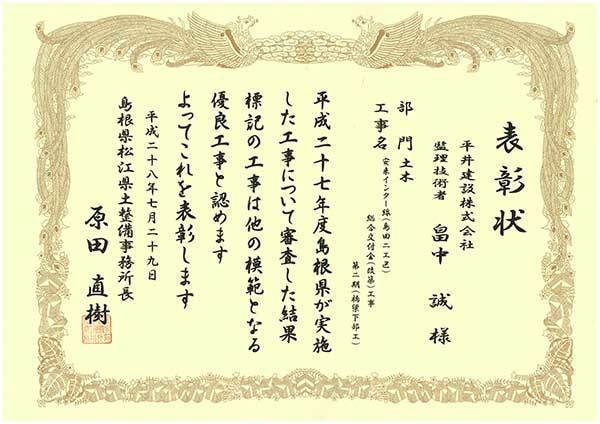 表彰状
平井建設株式会社
監理技術者 畠中 誠 様
部 門 土木
工事名 安来インター線(島田二工区)
総合交付金(改築)工事
第二期(橋梁下部工)
平成二十七年度島根県が実施
した工事について審査した結果
標記の工事は他の模範となる
優良工事と認めます
よってこれを表彰します
平成二十八年七月二十九日
島根県松江県土整備事務所長
原田 直樹